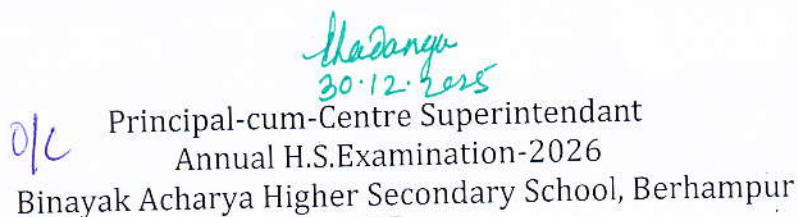 30.12.2025
O/C
Principal-cum-Centre Superintendant
Annual H.S.Examination-2026
Binayak Acharya Higher Secondary School, Berhampur